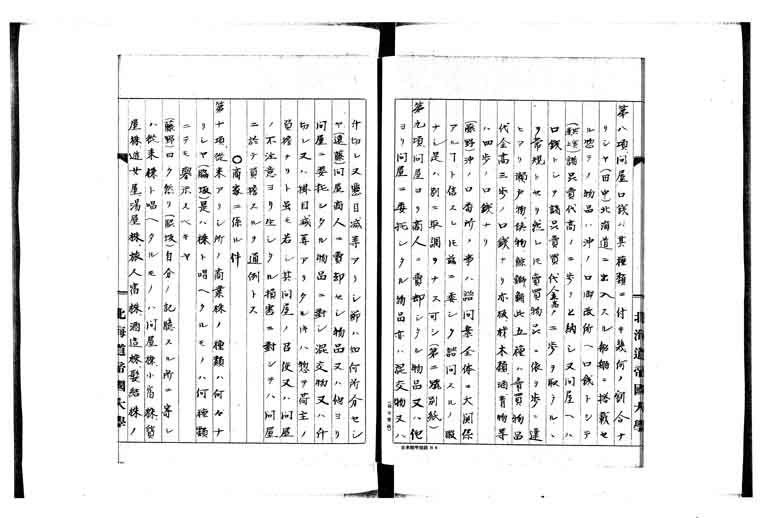 第八項問屋口銭ハ其種類ニ付キ幾何ノ割合ナ
リシヤ(田中)北海道ニ出入スル船舶ニ搭載セ
ル惣テノ物品ハ沖ノ口御改所ヘ口銭トシテ
諸品賣買代高ノ二歩ヲ納シ又問屋ヘハ
口銭トシテ諸品賣買代金高ノ二歩ヲ取ラルヽ
ヲ常規トセリ然レ𪜈賣買物品ニ依リ歩ニ違
ヒアリ瀬戸物鉄物此五種ハ賣買物品
代金高三歩ノ口銭ナリ亦板材木類酒青物等
ハ四歩ノ口銭ナリ
(藤野)沖ノ口番所ノ事ハ諮問案全体ニ大関係
アルヿト信スレ𪜈茲ニ委シク諮問スルノ暇
ナシ是ハ別ニ取調ヲナス可シ(第二號別紙)
第九項問屋ヨリ商人ニ賣却シタル物品又ハ他
ヨリ問屋ニ委托シタル物品亦ハ混交物又ハ
北海道帝國大學
斤切レ又ハ量目減等アリシ節ハ如何所分セシ
ヤ(遠藤)問屋商人ニ賣却セシ物品又ハ他ヨリ
問屋ニ委托シタル物品ニ對シ混交物又ハ斤
切レ又ハ掛目減等アリタル件ハ惣テ荷主ノ
負擔ナリト虽モ若シ其問屋ノ召使又ハ問屋
ノ不注意ヨリ生シタル損害ニ對シテハ問屋
ニ於テ負擔スルヲ通例トス
〇商家ニ係ル件
第十項從来アリシ所ノ商業株ノ種類ハ何々ナ
リシヤ(脇坂)是ハ株ト唱ヘタルモノハ何種類
ニテモ挙ラスヘキヤ
(藤野)曰ク然リ(脇坂)自分ノ記臆スル所ニ寄レ
ハ從来株ト唱ヘタルモノハ問屋株小宿株質
屋株遊女屋湯屋株旅人宿株酒造株髪結株ノ
北海道帝國大學